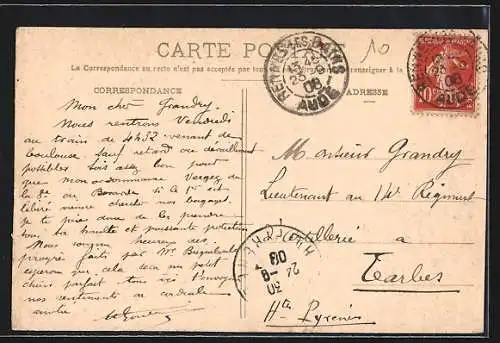 CARTE POSTALE
10
La Correspondance au recto n'est pas acceptée par tous
renseigner à la
CORRESPONDANCE
ADRESSE
RENNES-LES-BAINS
08
AUDE
10
Mon cher Grandry.
Nous rentrons Vendredi
au train de 4h32 venant de
Toulouse. Sauf retard ou déraillement
possibles. Sois assez bon pour
que mon ordonnance Verger de
la 8e ou si le 1er est
libéré vienne chercher nos bagages.
Je te prie donc de les prendre
sous ta haute et puissante protection
Nous sommes heureux des
progrès faits par Mr
espérons que cela sera un petit
chien parfait tous vis t'envoye
nos sentiments de cordiale
amitié
Monsieur Grandry
Lieutenant au 14e Régiment
d'Artillerie à
Tarbes
Htes Pyrénées
30
24-8
08